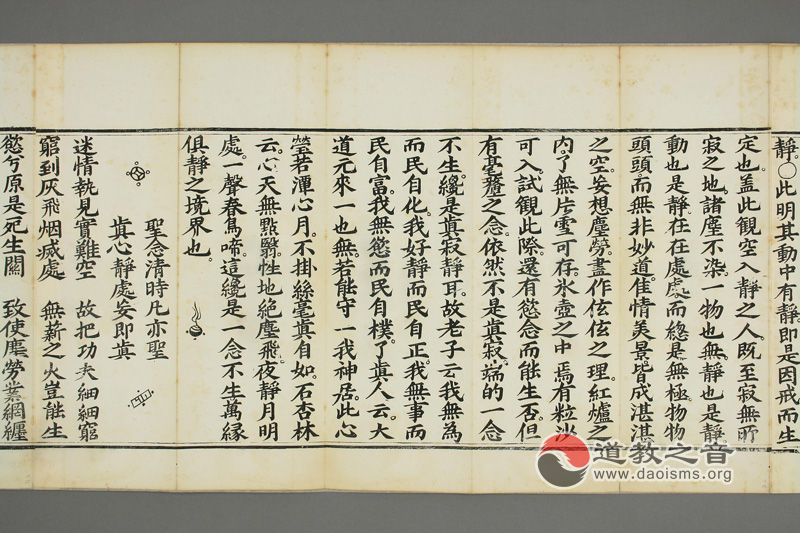 靜○此明其動中有靜即是因戒而生
定也蓋此觀空入靜之人既至寂無所
寂之地諸塵不染一物也無靜也是靜
動也是靜在在處處而總是無極物物
頭頭而無非妙道佳情美景皆成湛湛
之空妄想塵勞盡作伭伭之理紅爐之
內了無片雪可存氷壺之中焉有粒沙
可入試觀此際還有慾念而能生否但
有毫釐之念依然不是真寂端的一念
不生纔是真寂靜耳故老子云我無為
而民自化我好靜而民自正我無事而
民自富我無慾而民自樸了真人云大
道元來一也無若能守一我神居此心
瑩若潭心月不掛絲毫真自如石杏林
云心天無點翳性地絶塵飛夜靜月明
處一聲春鳥啼這纔是一念不生萬緣
俱靜之境界也
聖念清時凡亦聖
真心靜處妄即真
迷情執見實難空 故把功夫細細窮
窮到灰飛烟滅處 無薪之火豈能生
慾兮原是死生關 致使塵勞業網纏
道教之音
www.daoisms.org